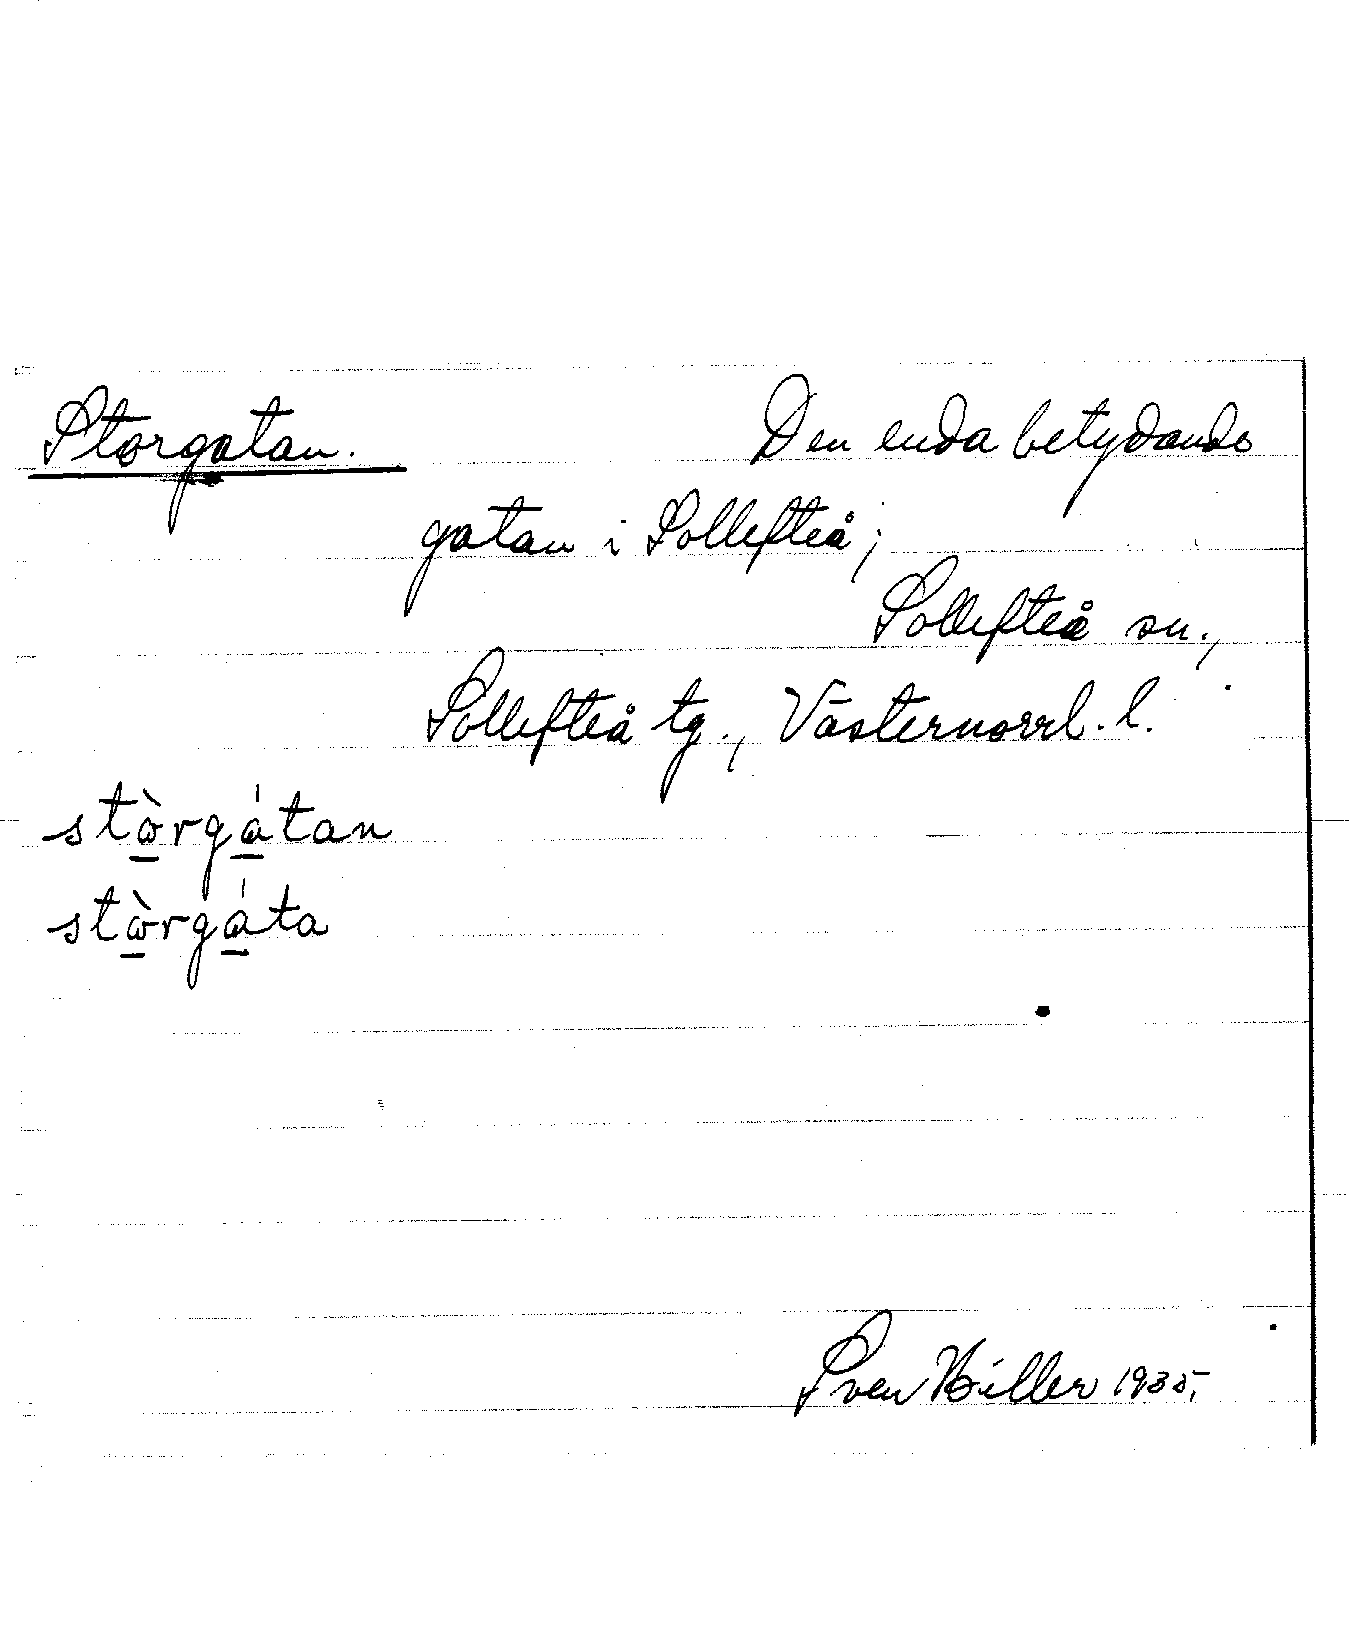 Storgatan. Den enda betydande
gatan i Sollefteå;
Sollefteå sn.,
Sollefteå tg., Västernorrl. l.
stò̱rgá̱tan
stò̱rgá̱ta
Sven Hiller 1935.